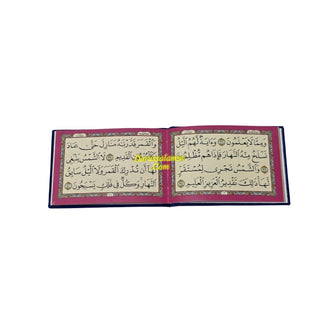 وَمِمَّا لَا يَعْلَمُونَ وَءَايَةٌ لَّهُمُ الَّيْلُ
نَسْلَخُ مِنْهُ النَّهَارَ فَإِذَا هُم مُّظْلِمُونَ
وَالشَّمْسُ تَجْرِي لِمُسْتَقَرٍّ
لَّهَا ذَٰلِكَ تَقْدِيرُ الْعَزِيزِ الْعَلِيمِ
وَالْقَمَرَ قَدَّرْنَٰهُ مَنَازِلَ حَتَّىٰ عَادَ
كَالْعُرْجُونِ الْقَدِيمِ لَا الشَّمْسُ يَنۢبَغِي
لَهَا أَن تُدْرِكَ الْقَمَرَ وَلَا الَّيْلُ سَابِقُ
النَّهَارِ وَكُلٌّ فِي فَلَكٍ يَسْبَحُونَ
Com